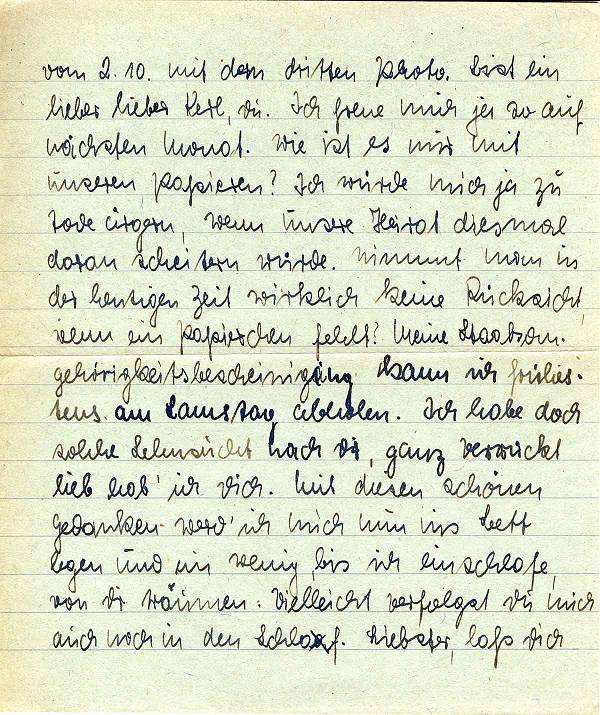 vom 2.10. mit dem dritten Photo. Bist ein
lieber lieber Kerl, du. Ich freue mich ja so auf
nächsten Monat. Wie ist es nur mit
unseren Papieren? Ich würde mich ja zu
Tode ärgern, wenn unsere Heirat diesmal
daran scheitern würde. Nimmt man in
der heutigen Zeit wirklich keine Rücksicht,
wenn ein Papierchen fehlt? Meine Staatsan-
gehörigkeitsbescheinigung kann ich frühes-
tens am Samstag abholen. Ich habe doch
solche Sehnsucht nach dir, ganz verrückt
lieb hab' ich dich. Mit diesen schönen
Gedanken werd' ich mich nun ins Bett
legen und ein wenig, bis ich einschlafe,
von dir träumen. Vielleicht verfolgst du mich
auch noch in den Schlaf. Liebster, laß dich